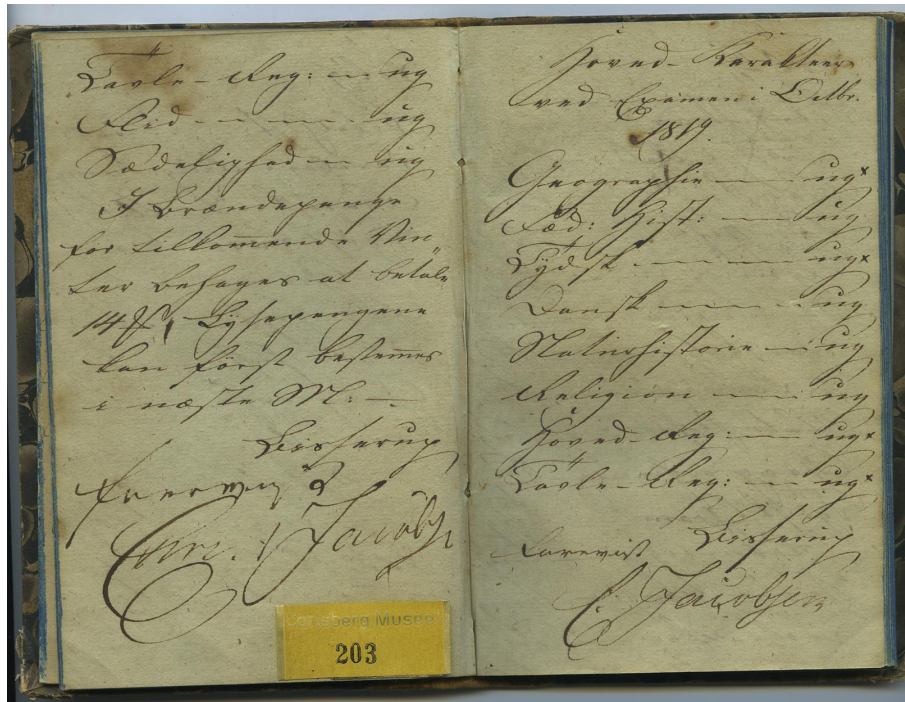 Tavle-Reg: — ug
Flid — — — ug
Sædelighed — ug
I Brændepenge
for tilkommende Vin„
ter behages at betale
14 ₰, Lysepengene
kan først bestemmes
i næste M: —
Bisserup
Forevist
Chr. Jacobsen
Carlsberg Museet
203
Hoved-Karakteer
ved Examen i Octbr.
1819.
Geographie — ugˣ
Fæd: Hist: — ug
Tydsk — — — ugˣ
Dansk — — — ug
Naturhistorie — ug
Religion — — ug
Hoved-Reg: — ugˣ
Tavle-Reg: — ugˣ
Bisserup
Forevist
C. Jacobsen